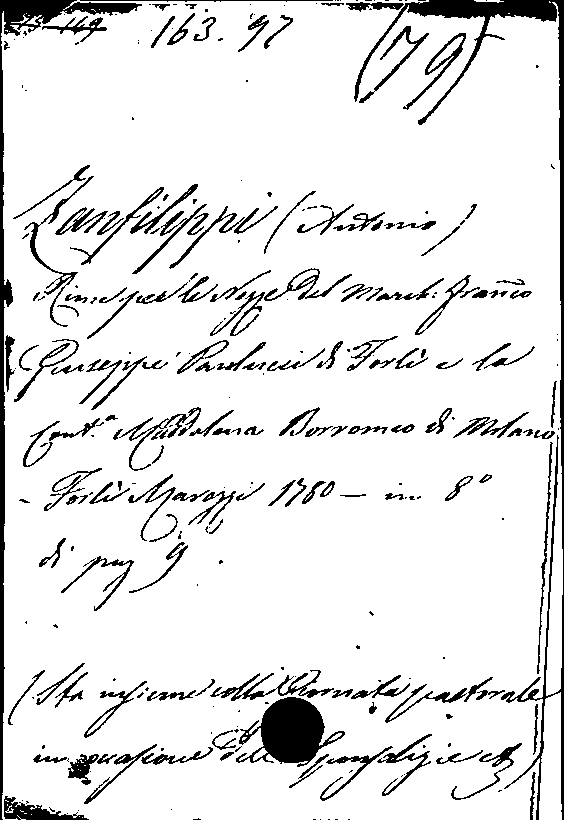 163. 97
(79)
Zanfilippi (Antonio)
Rime per le Nozze del March: Franco
Giuseppe Paulucci di Forlì e la
Cont.a Maddalena Borromeo di Milano
- Forlì Marozzi 1780 — in 8°
di pag 9.
(Sta insieme colla Giornata pastorale
in occasione dell Sponsalizie etc)